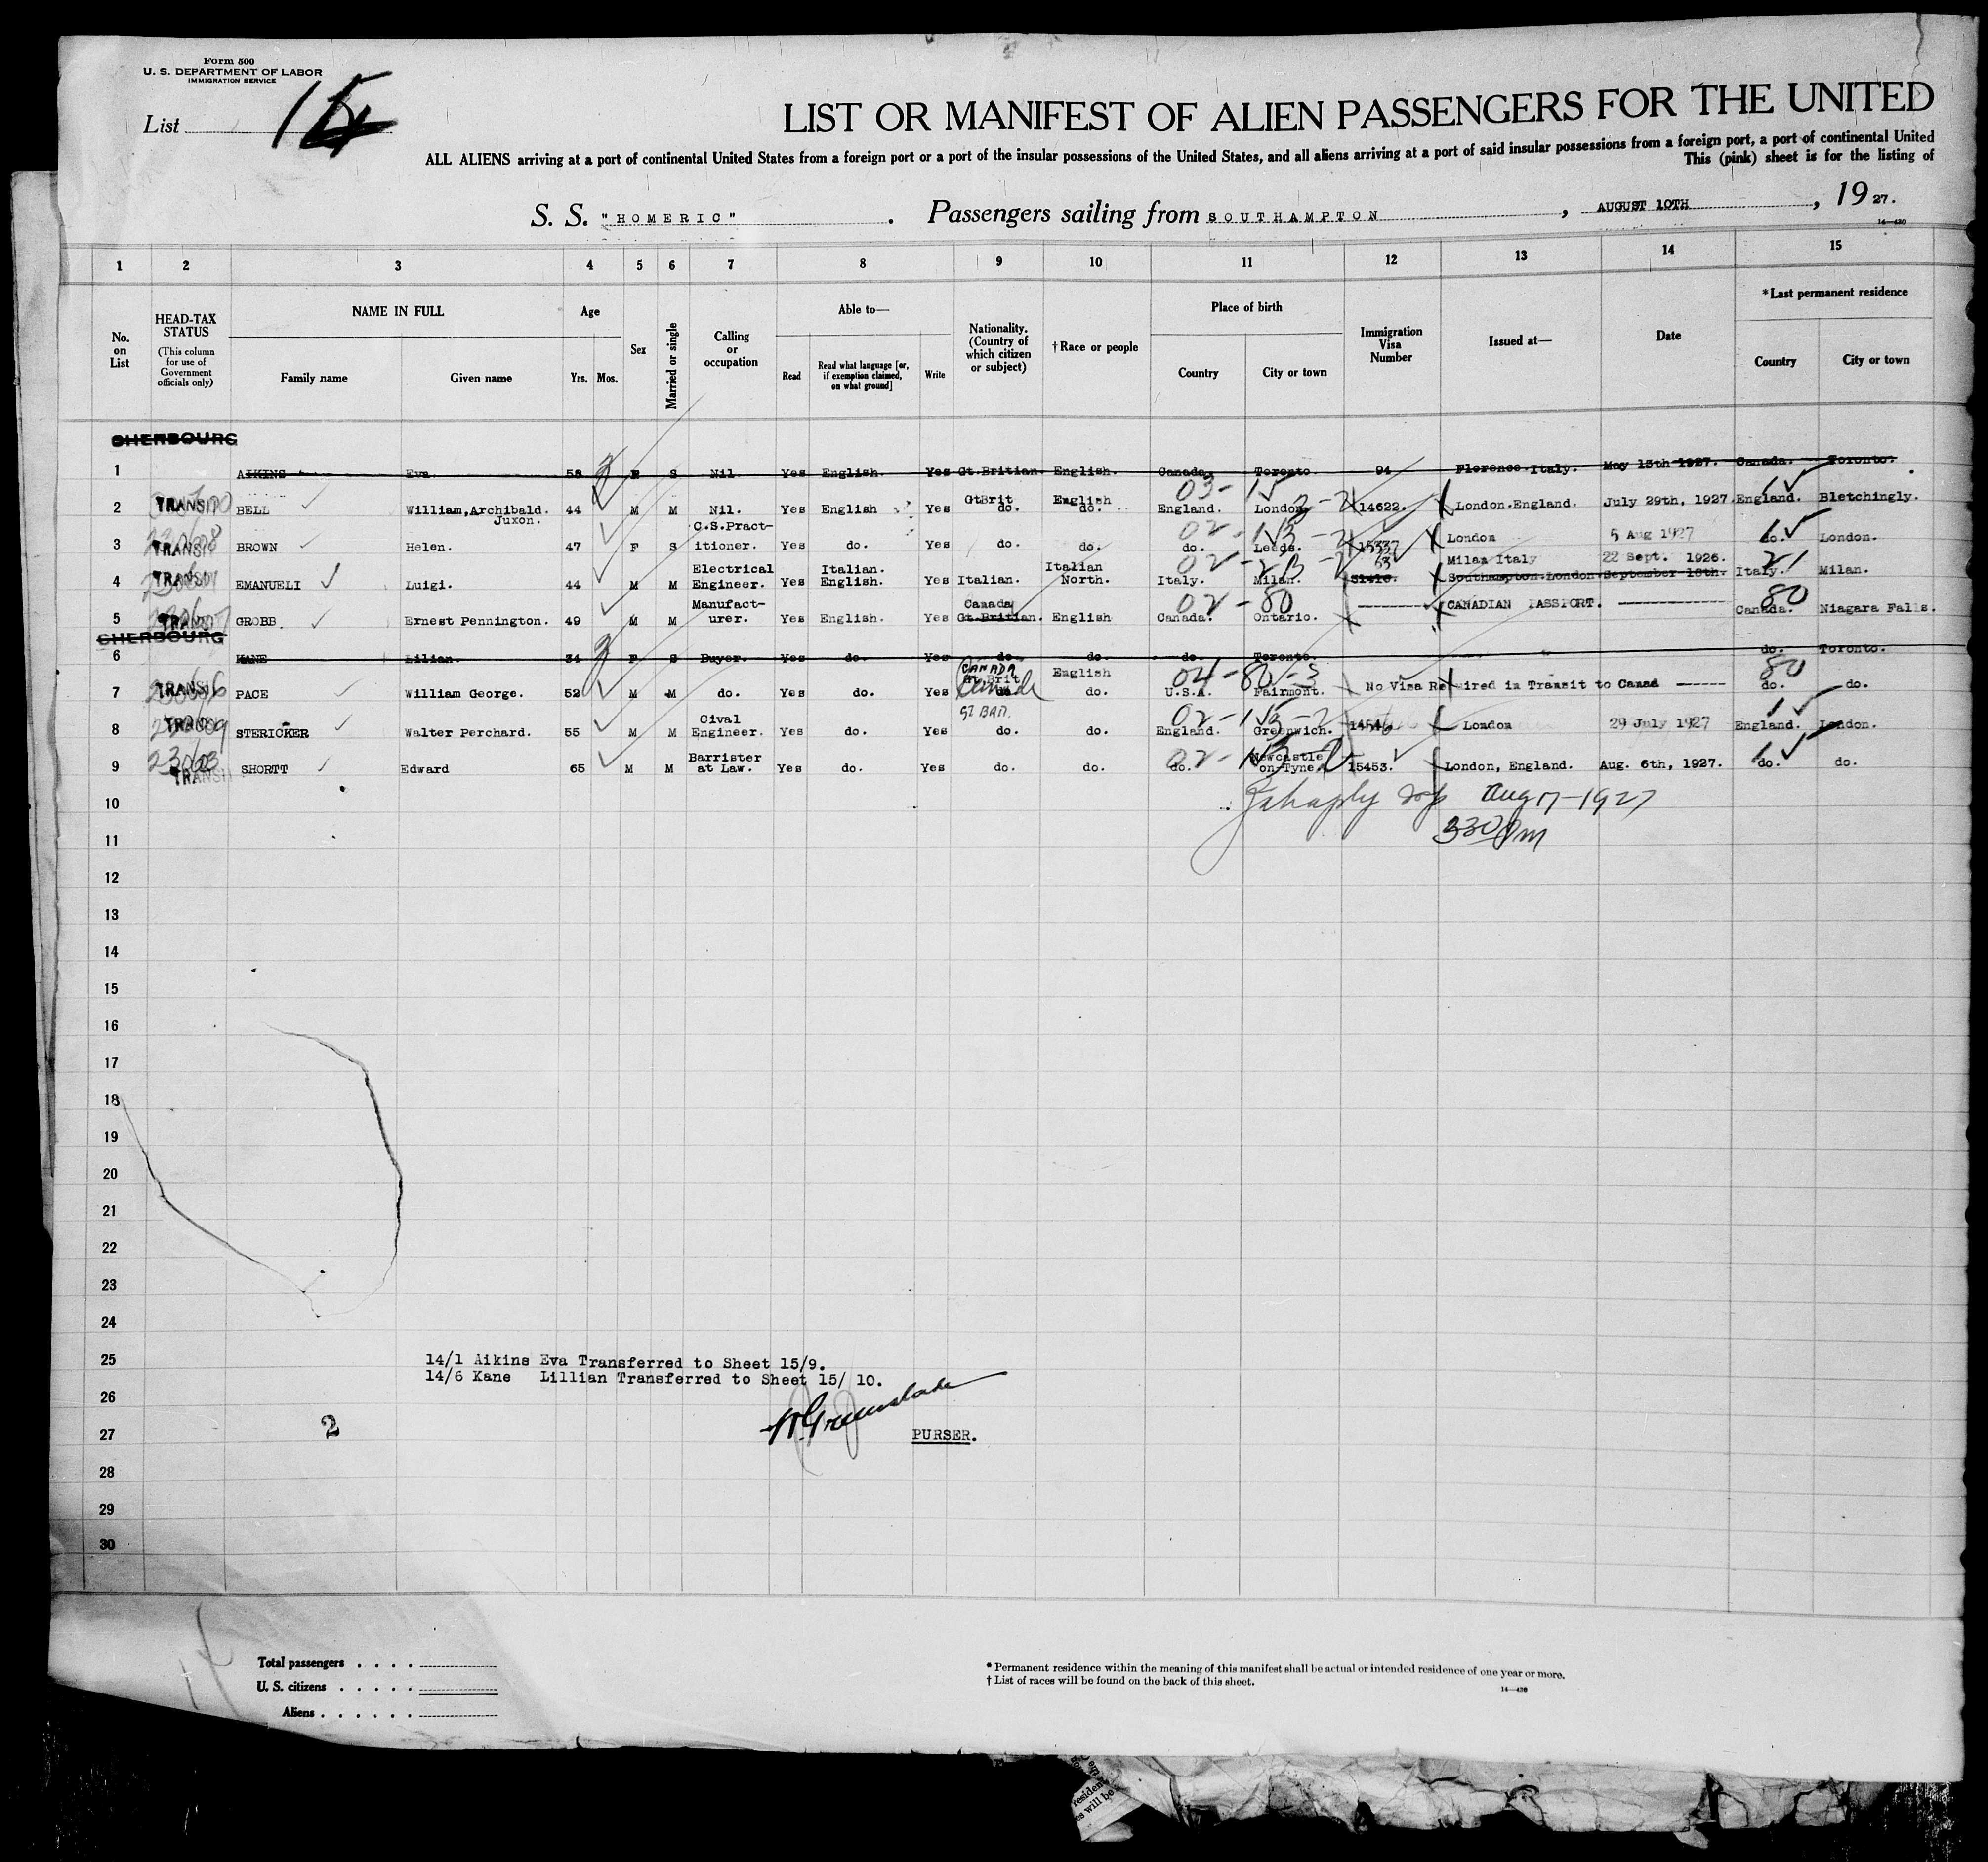 Form 500
U. S. DEPARTMENT OF LABOR
IMMIGRATION SERVICE
List
LIST OR MANIFEST OF ALIEN PASSENGERS FOR THE UNITED
ALL ALIENS arriving at a port of continental United States from a foreign port or a port of the insular possessions of the United States, and all aliens arriving at a port of said insular possessions from a foreign port, a port of continental United
This (pink) sheet is for the listing of
S. S. "HOMERIC". Passengers sailing from SOUTHAMPTON, AUGUST 10TH, 1927.
14—430
1 2 3 4 5 6 7 8 9 10 11 12 13 14 15
No. on List
HEAD-TAX STATUS (This column for use of Government officials only)
NAME IN FULL
Family name Given name
Age
Yrs. Mos.
Sex
Married or single
Calling or occupation
Able to—
Read Read what language [or, if exemption claimed, on what ground] Write
Nationality. (Country of which citizen or subject)
†Race or people
Place of birth
Country City or town
Immigration Visa Number
Issued at—
Date
*Last permanent residence
Country City or town
CHERBOURG
1 AIKINS Eva. 58 F S Nil. Yes English. Yes Gt.Britian. English. Canada. Toronto. 94 Florence.Italy. May 15th 1927. Canada. Toronto.
03-
2 TRANSIT BELL William,Archibald. Juxon. 44 M M Nil. Yes English Yes GtBrit do. English do. England. London. 14622. London.England. July 29th, 1927. England. Bletchingly.
3 TRANSIT BROWN Helen. 47 F S C.S.Practitioner. Yes do. Yes do. do. do. Leeds. 15337 London 5 Aug 1927 do. London.
4 TRANSIT EMANUELI Luigi. 44 M M Electrical Engineer. Yes Italian. English. Yes Italian. Italian North. Italy. Milan. 53 51416. Milan Italy Southampton.London. 22 Sept. 1926. September 18th. Italy. 21 Milan.
02-80
5 TRANSIT GROBB. Ernest Pennington. 49 M M Manufacturer. Yes English. Yes Canada Gt.Britian. English Canada. Ontario. CANADIAN PASSPORT. 80 Canada. Niagara Falls.
CHERBOURG
6 KANE Lilian. 34 F S Buyer. Yes do. Yes do. do. do. Toronto. do. Toronto.
7 TRANSIT PACE William George. 52 M M do. Yes do. Yes CANADA Gt Brit do. Canada English do. U.S.A. Fairmont. No Visa Required in Transit to Canad 80 do. do.
8 TRANSIT STERICKER Walter Perchard. 55 M M Cival Engineer. Yes do. Yes do. do. England. Greenwich. 14546 London 29 July 1927 England. London.
9 TRANSIT SHORTT Edward 65 M M Barrister at Law. Yes do. Yes do. do. do. Newcastle on-Tyne. 15453. London, England. Aug. 6th, 1927. do. do.
10 Aug 17-1927
11 330 Pm
12
13
14
15
16
17
18
19
20
21
22
23
24
25 14/1 Aikins Eva Transferred to Sheet 15/9.
14/6 Kane Lillian Transferred to Sheet 15/ 10.
26
27 2 PURSER.
28
29
30
Total passengers
U. S. citizens
Aliens
* Permanent residence within the meaning of this manifest shall be actual or intended residence of one year or more.
† List of races will be found on the back of this sheet.
14—430